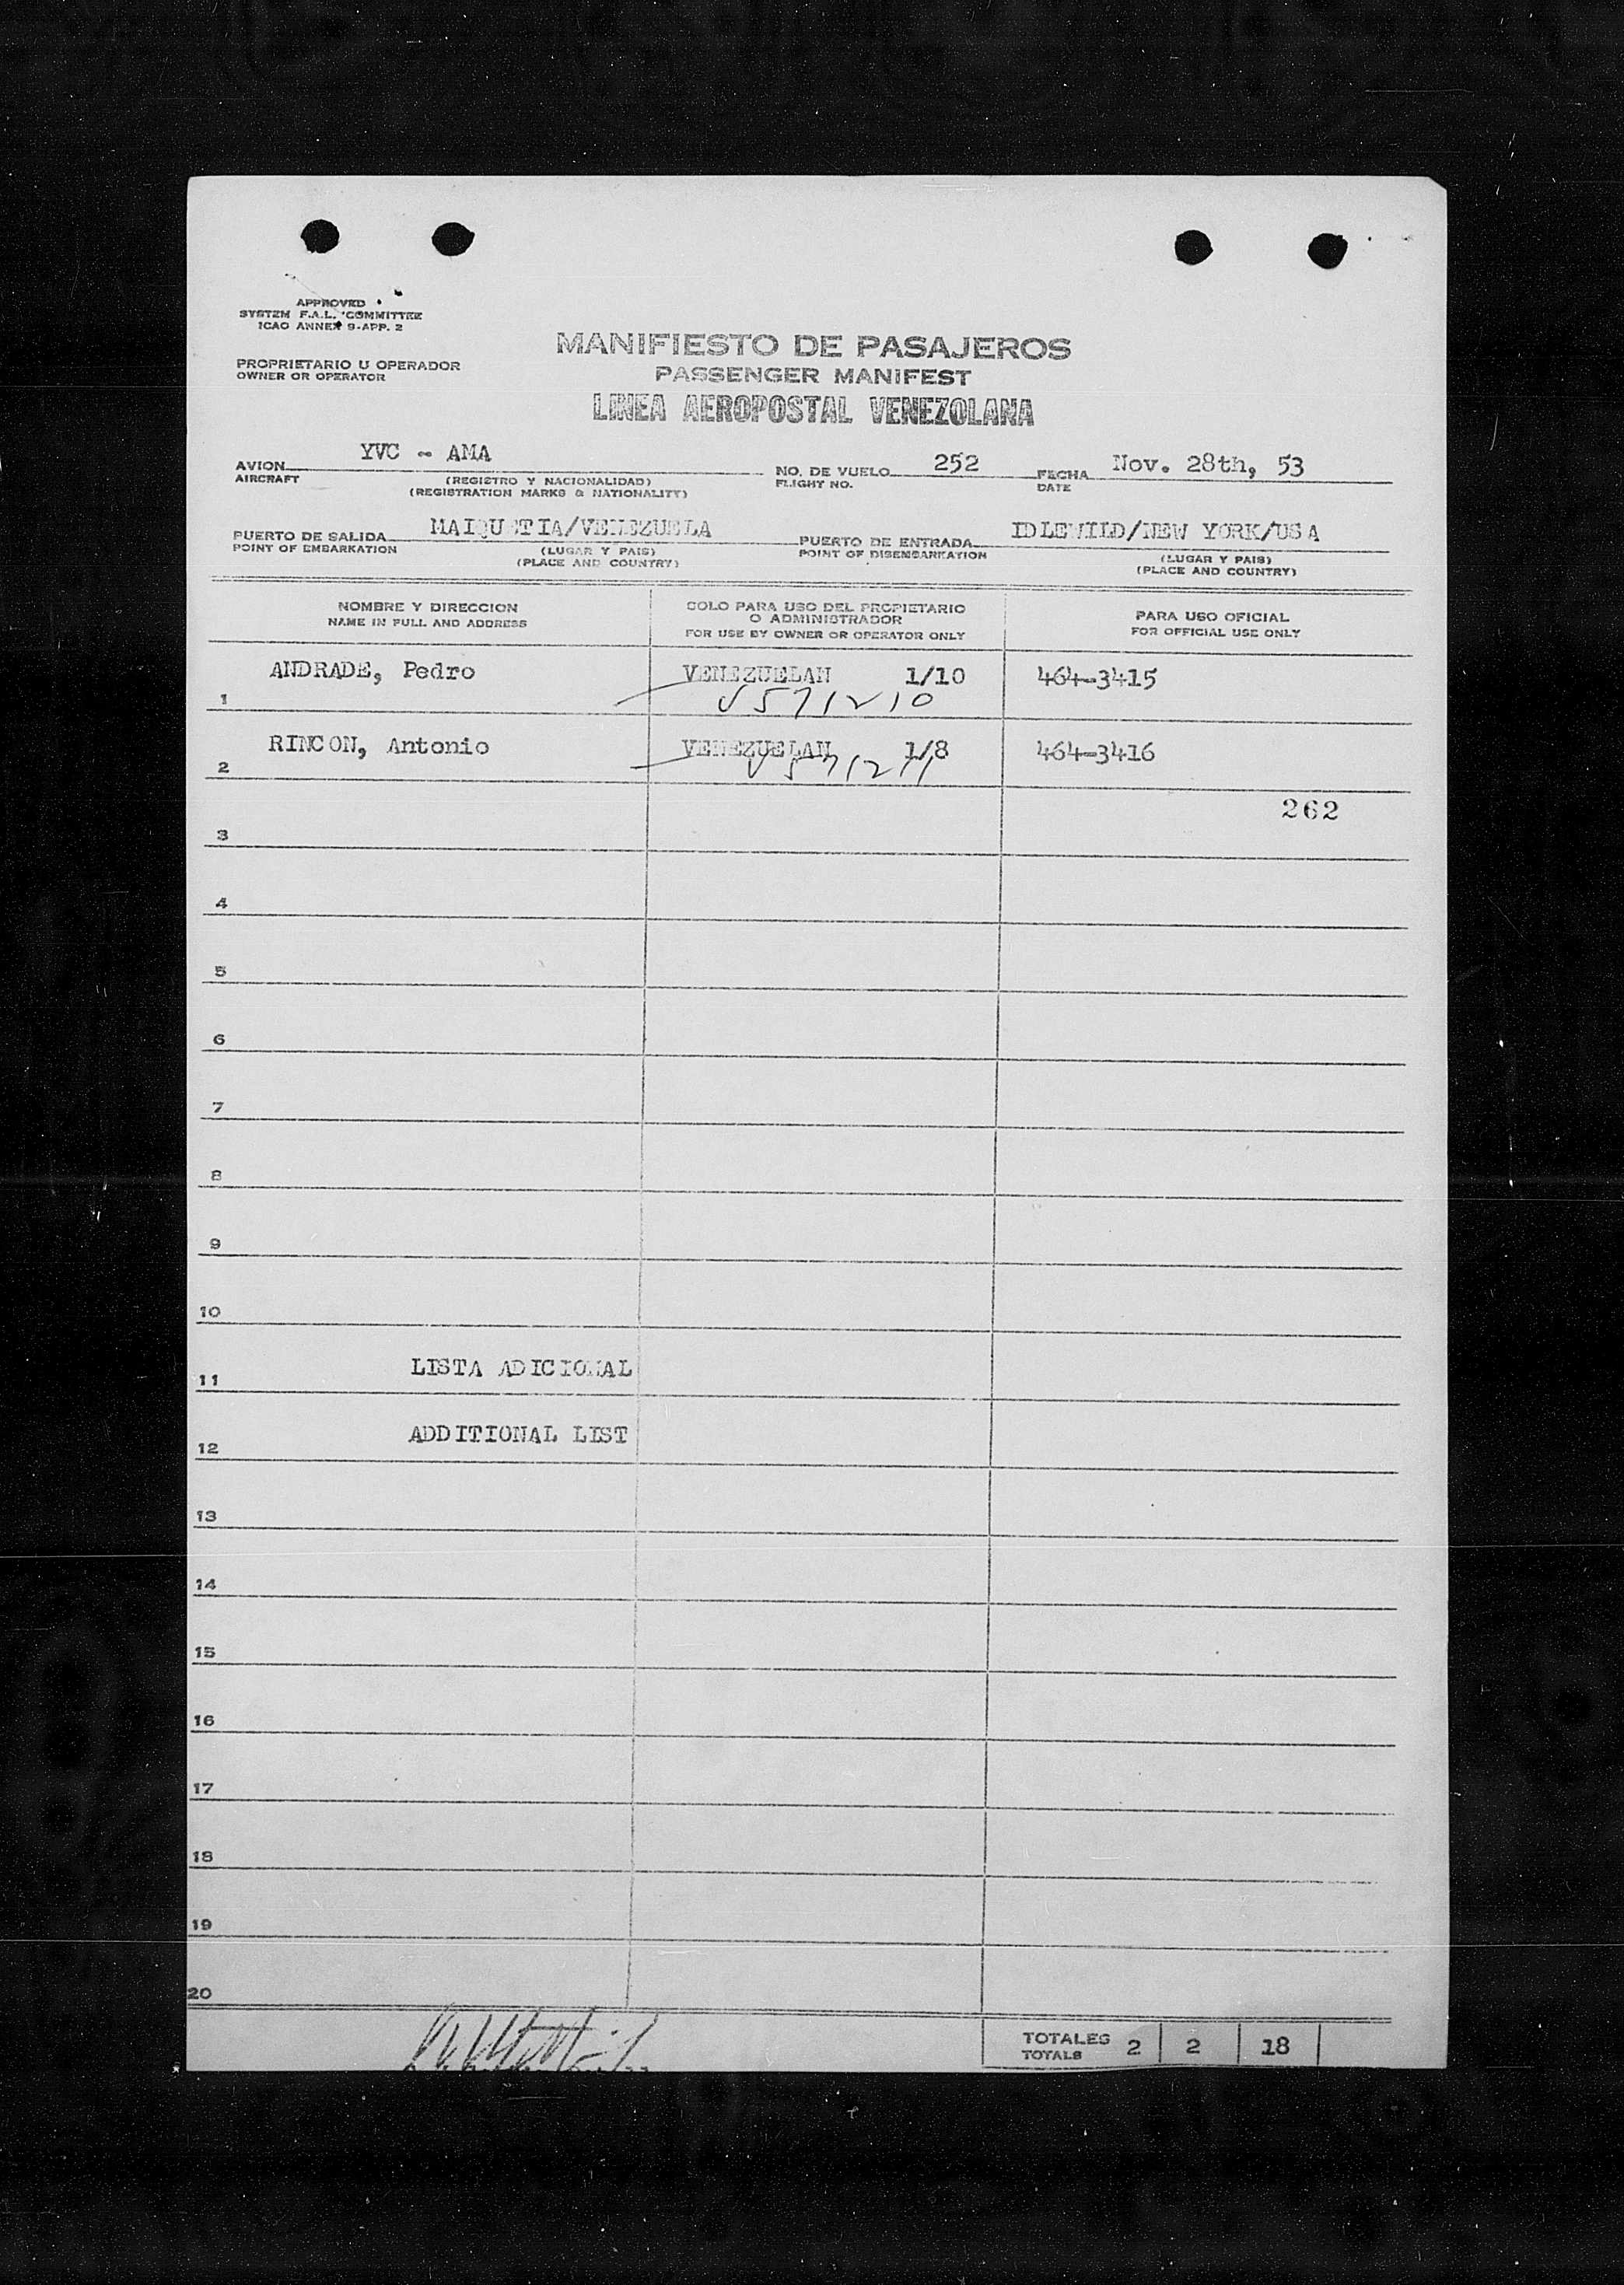 APPROVED
SYSTEM F.A.L. COMMITTEE
ICAO ANNEX 9-APP. 2
PROPRIETARIO U OPERADOR
OWNER OR OPERATOR
MANIFIESTO DE PASAJEROS
PASSENGER MANIFEST
LINEA AEROPOSTAL VENEZOLANA
AVION YVC - AMA NO. DE VUELO 252 FECHA Nov. 28th, 53
AIRCRAFT (REGISTRO Y NACIONALIDAD) FLIGHT NO. DATE
(REGISTRATION MARKS & NATIONALITY)
PUERTO DE SALIDA MAIQUETIA/VENEZUELA PUERTO DE ENTRADA IDLEWILD/NEW YORK/USA
POINT OF EMBARKATION (LUGAR Y PAIS) POINT OF DISEMBARKATION (LUGAR Y PAIS)
(PLACE AND COUNTRY) (PLACE AND COUNTRY)
NOMBRE Y DIRECCION SOLO PARA USO DEL PROPIETARIO O ADMINISTRADOR PARA USO OFICIAL
NAME IN FULL AND ADDRESS FOR USE BY OWNER OR OPERATOR ONLY FOR OFFICIAL USE ONLY
ANDRADE, Pedro VENEZUELAN 1/10 464-3415
1 V571210
RINCON, Antonio VENEZUELAN 1/8 464-3416
2 V571211
262
3
4
5
6
7
8
9
10
11 LISTA ADICIONAL
12 ADDITIONAL LIST
13
14
15
16
17
18
19
20
TOTALES 2 2 18
TOTALS